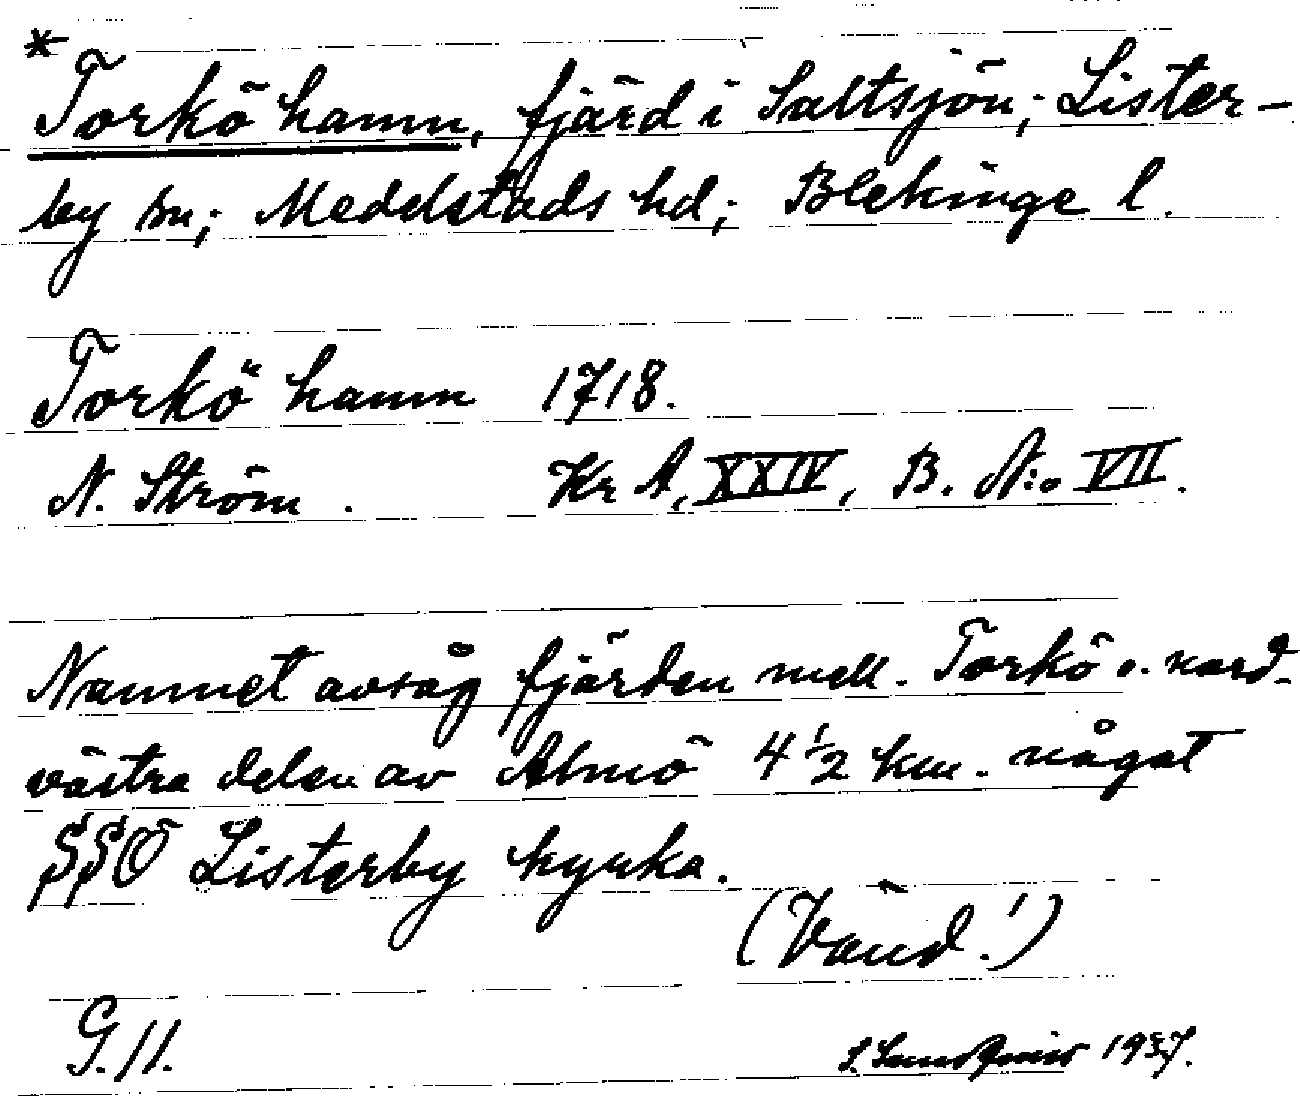 * Torkö hamn, fjärd i Saltsjön; Lister-
by sn; Medelstads hd; Blekinge l.
Torkö hamn 1718.
N. Ström. Kr A, XXIV, B. N:o VII.
Namnet avsåg fjärden mell. Torkö o. nord-
västra delen av Almö 4 1/2 km. något
SSÖ Listerby kyrka.
(Vänd!)
G. 11.
1937.